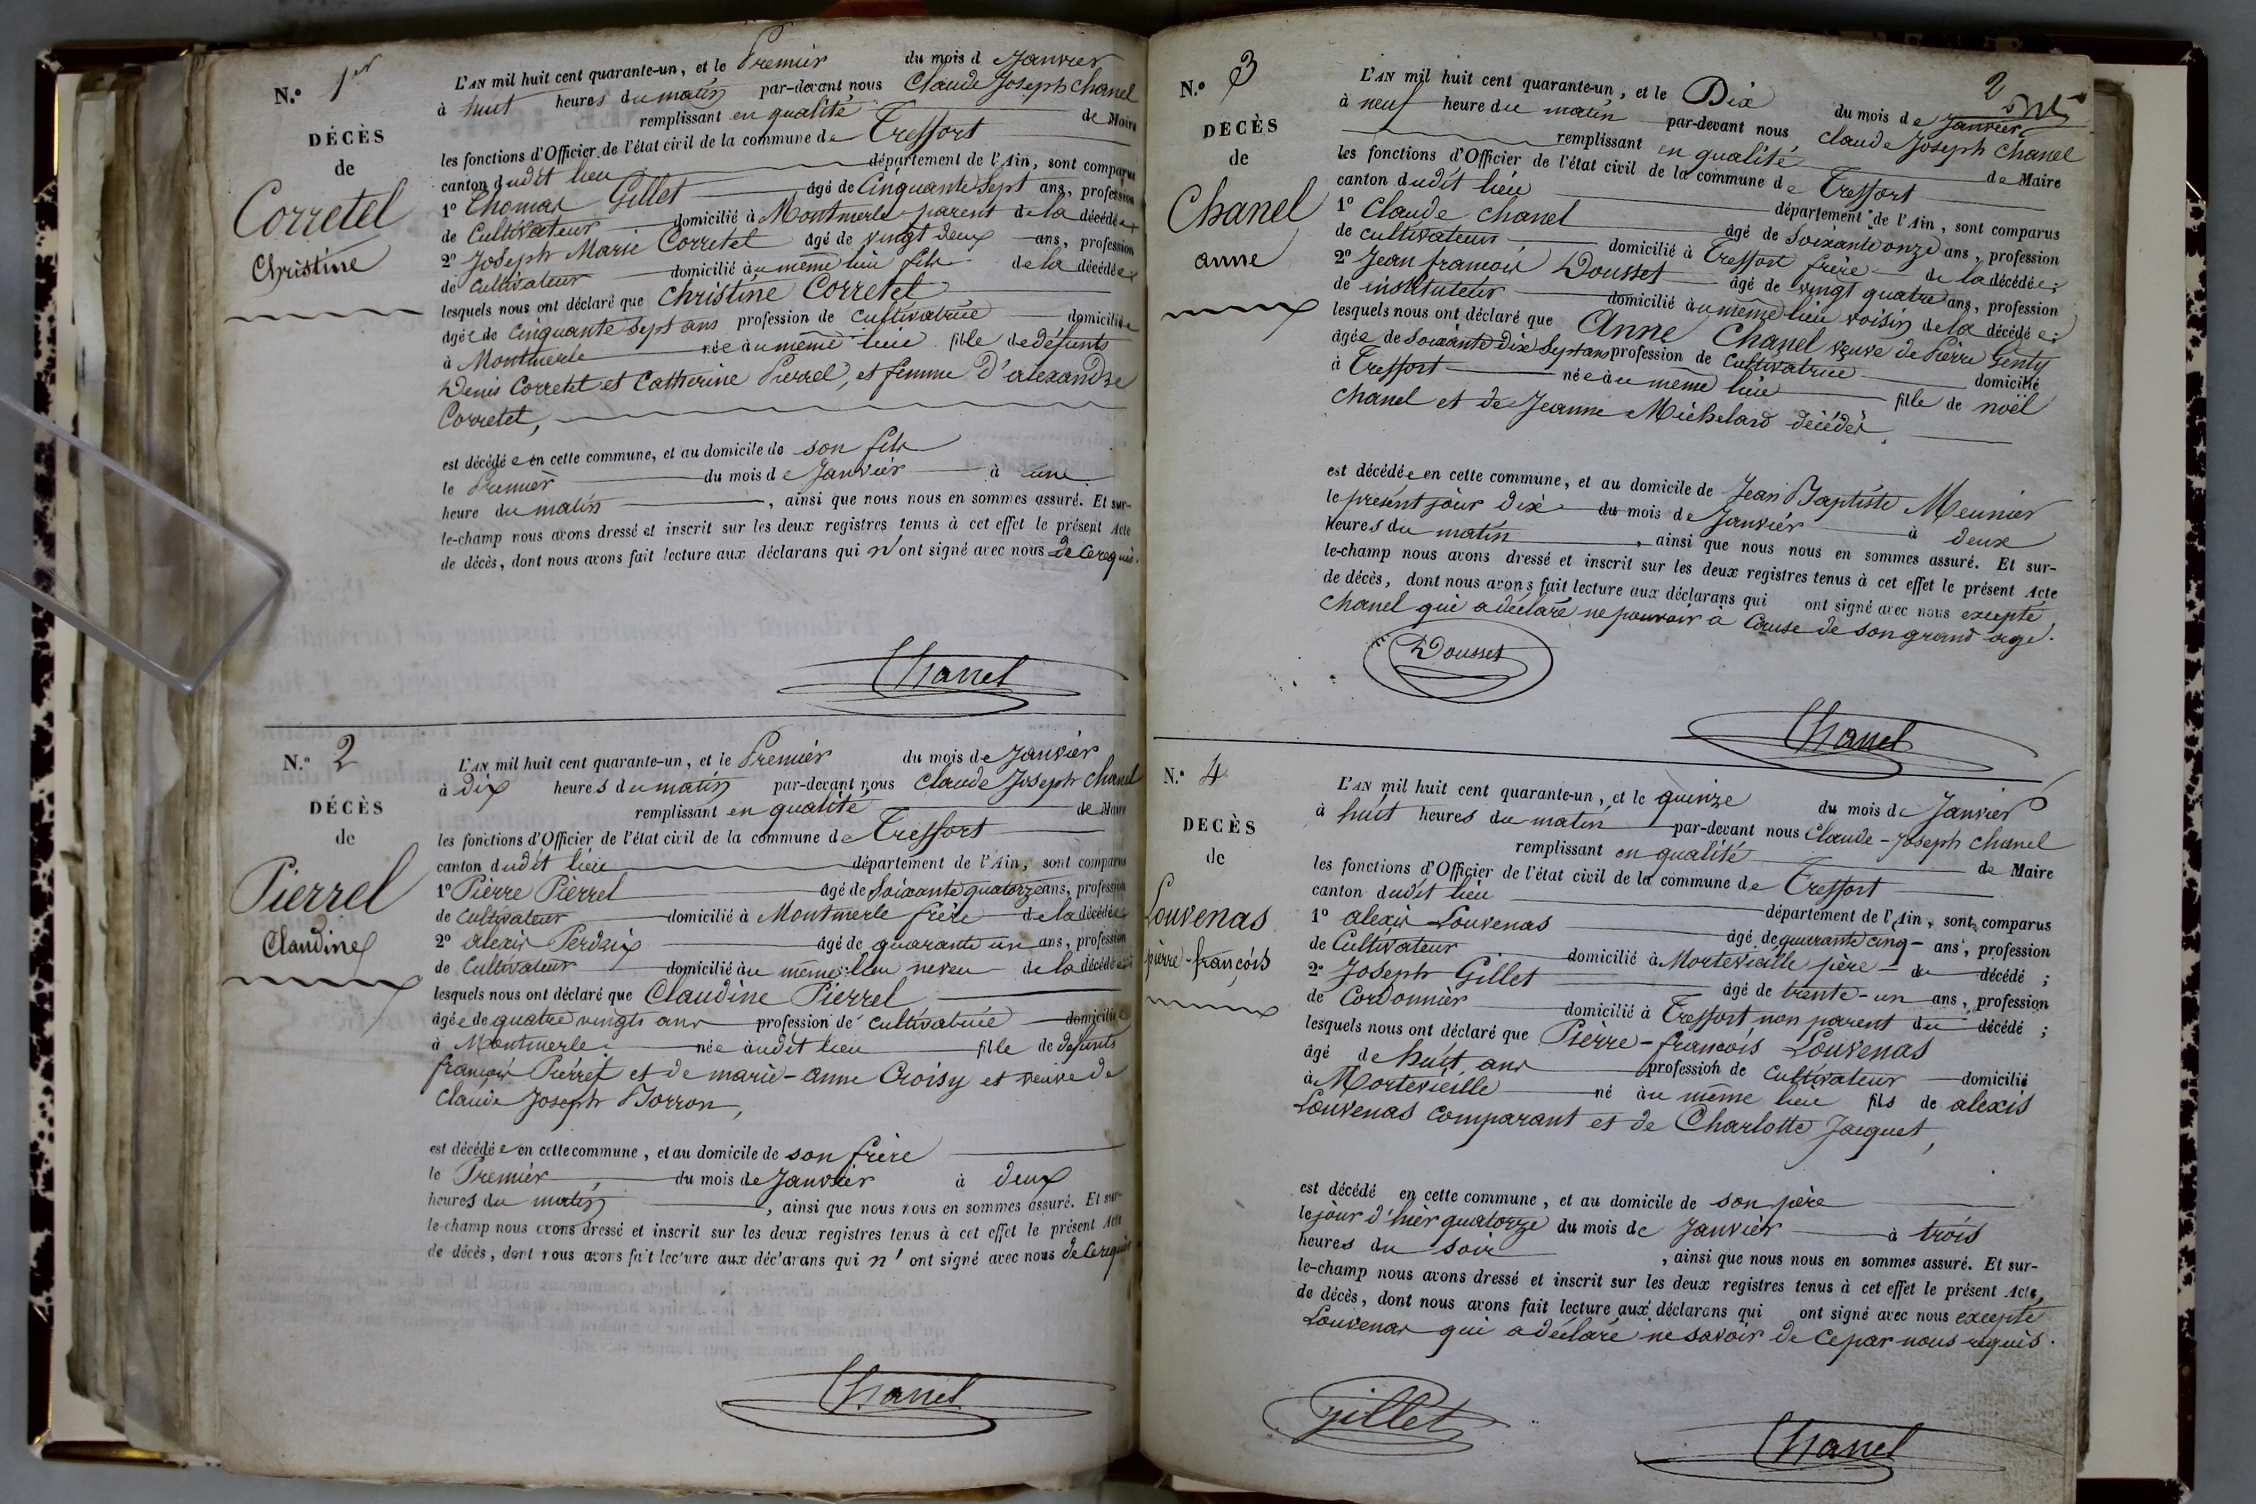 N.° 1er
DÉCÈS
de
Corretel
Christine
L'AN mil huit cent quarante-un, et le Premier du mois d Janvier
à huit heures du matin par-devant nous Claude Joseph Chanel
remplissant en qualité de Maire
les fonctions d'Officier de l'état civil de la commune de Treffort
canton dudit lieu département de l'Ain, sont comparus
1° Thomas Gillet âgé de Cinquante Sept ans, profession
de Cultivateur domicilié à Montmerle parent de la décédée
2° Joseph Marie Corretel âgé de vingt deux ans, profession
de Cultivateur domicilié au même lieu fils de la décédée
lesquels nous ont déclaré que Christine Corretel
âgée de cinquante sept ans profession de cultivatrice domiciliée
à Montmerle née au même lieu fille de défunts
Denis Corretel et Catherine Pierrel, et femme d'alexandre
Corretel,
est décédée en cette commune, et au domicile de son fils
le Premier du mois de Janvier à une
heure du matin, ainsi que nous nous en sommes assuré. Et sur-
le-champ nous avons dressé et inscrit sur les deux registres tenus à cet effet le présent Acte
de décès, dont nous avons fait lecture aux déclarans qui n'ont signé avec nous de ce requis.
Chanel
N.° 2
DÉCÈS
de
Pierrel
Claudine
L'AN mil huit cent quarante-un, et le Premier du mois de Janvier
à Dix heures du matin par-devant nous Claude Joseph Chanel
remplissant en qualité de Maire
les fonctions d'Officier de l'état civil de la commune de Treffort
canton dudit lieu département de l'Ain, sont comparus
1° Pierre Pierrel âgé de Soixante quatorze ans, profession
de cultivateur domicilié à Montmerle frère de la décédée
2° alexis Perdrix âgé de quarante un ans, profession
de Cultivateur domicilié au même lieu neveu de la décédée
lesquels nous ont déclaré que Claudine Pierrel
âgée de quatre vingts ans profession de cultivatrice domiciliée
à Montmerle née audit lieu fille de défunts
françois Pierrel et de marie-anne Croisy et veuve de
Claude Joseph Borron,
est décédée en cette commune, et au domicile de son frère
le Premier du mois de Janvier à deux
heures du matin, ainsi que nous nous en sommes assuré. Et sur-
le-champ nous avons dressé et inscrit sur les deux registres tenus à cet effet le présent Acte
de décès, dont nous avons fait lecture aux déclarans qui n'ont signé avec nous de ce requis
Chanel
2
N.° 3
DÉCÈS
de
Chanel
anne
L'AN mil huit cent quarante-un, et le Dix du mois de Janvier
à neuf heure du matin par-devant nous Claude Joseph Chanel
remplissant en qualité de Maire
les fonctions d'Officier de l'état civil de la commune de Treffort
canton dudit lieu département de l'Ain, sont comparus
1° Claude Chanel âgé de Soixante onze ans, profession
de cultivateur domicilié à Treffort frère de la décédée;
2° Jean françois Dousset âgé de vingt quatre ans, profession
de instituteur domicilié au même lieu voisin de la décédée;
lesquels nous ont déclaré que Anne Chanel veuve de Pierre Genty
âgée de Soixante Dix Sept ans profession de Cultivatrice domicilié
à Treffort née au même lieu fille de noël
Chanel et de Jeanne Michelard décédés,
est décédée en cette commune, et au domicile de Jean Baptiste Meunier
le présent jour dix du mois de Janvier à deux
heures du matin, ainsi que nous nous en sommes assuré. Et sur-
le-champ nous avons dressé et inscrit sur les deux registres tenus à cet effet le présent Acte
de décès, dont nous avons fait lecture aux déclarans qui ont signé avec nous excepté
Chanel qui a déclaré ne pouvoir à Cause de son grand age.
Dousset
Chanel
N.° 4
DECÈS
de
Louvenas
pierre-françois
L'AN mil huit cent quarante-un, et le quinze du mois de Janvier
à huit heures du matin par-devant nous Claude-Joseph Chanel
remplissant en qualité de Maire
les fonctions d'Officier de l'état civil de la commune de Treffort
canton dudit lieu département de l'Ain, sont comparus
1° alexis Louvenas âgé de quarante cinq ans, profession
de Cultivateur domicilié à Mortevieille père du décédé;
2° Joseph Gillet âgé de trente-un ans, profession
de Cordonnier domicilié à Treffort non parent du décédé;
lesquels nous ont déclaré que Pierre-françois Louvenas
âgé de huit ans profession de Cultivateur domicilié
à Mortevieille né au même lieu fils de alexis
Louvenas comparant et de Charlotte Jacquet,
est décédé en cette commune, et au domicile de son père
le jour d'hier quatorze du mois de Janvier à trois
heures du soir, ainsi que nous nous en sommes assuré. Et sur-
le-champ nous avons dressé et inscrit sur les deux registres tenus à cet effet le présent Acte,
de décès, dont nous avons fait lecture aux déclarans qui ont signé avec nous excepté
Louvenas qui a déclaré ne savoir de ce par nous requis.
Gillet
Chanel